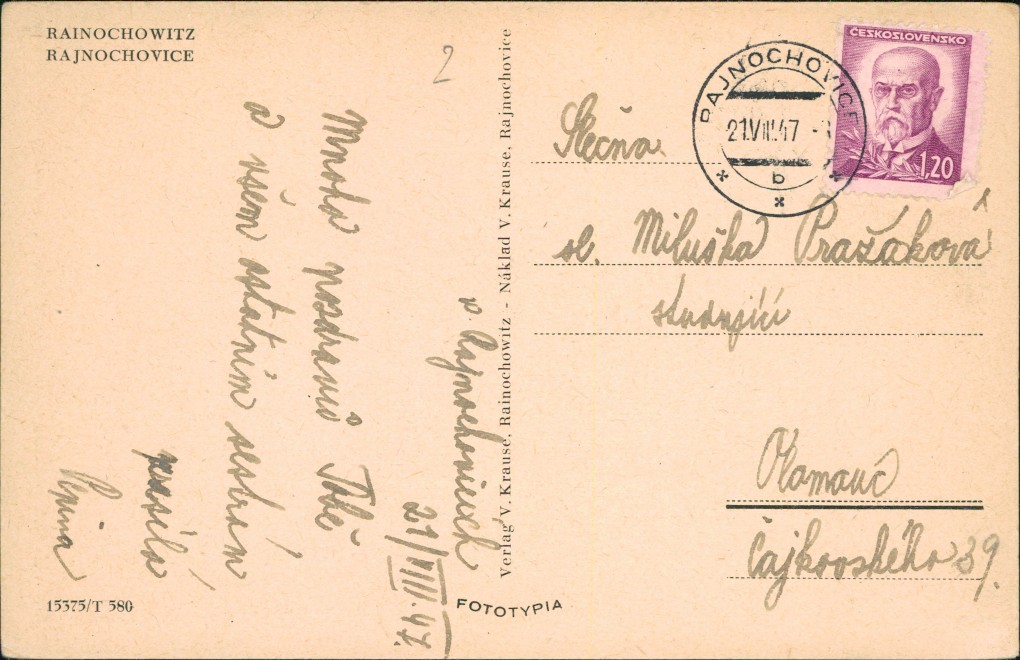 RAINOCHOWITZ
RAJNOCHOVICE
2
v Rajnochovicích
21/VIII.47.
Mnoho pozdravů Tobě
a všem ostatním sestrám
posílá
Verlag V. Krause, Rainochowitz - Náklad V. Krause, Rajnochovice
15375/T 580
FOTOTYPIA
RAJNOCHOVICE
21.VIII.47
b
ČESKOSLOVENSKO
1,20
Slečna
sl. Miluška Pražáková
studující
Olomouc
Čajkovského 39.